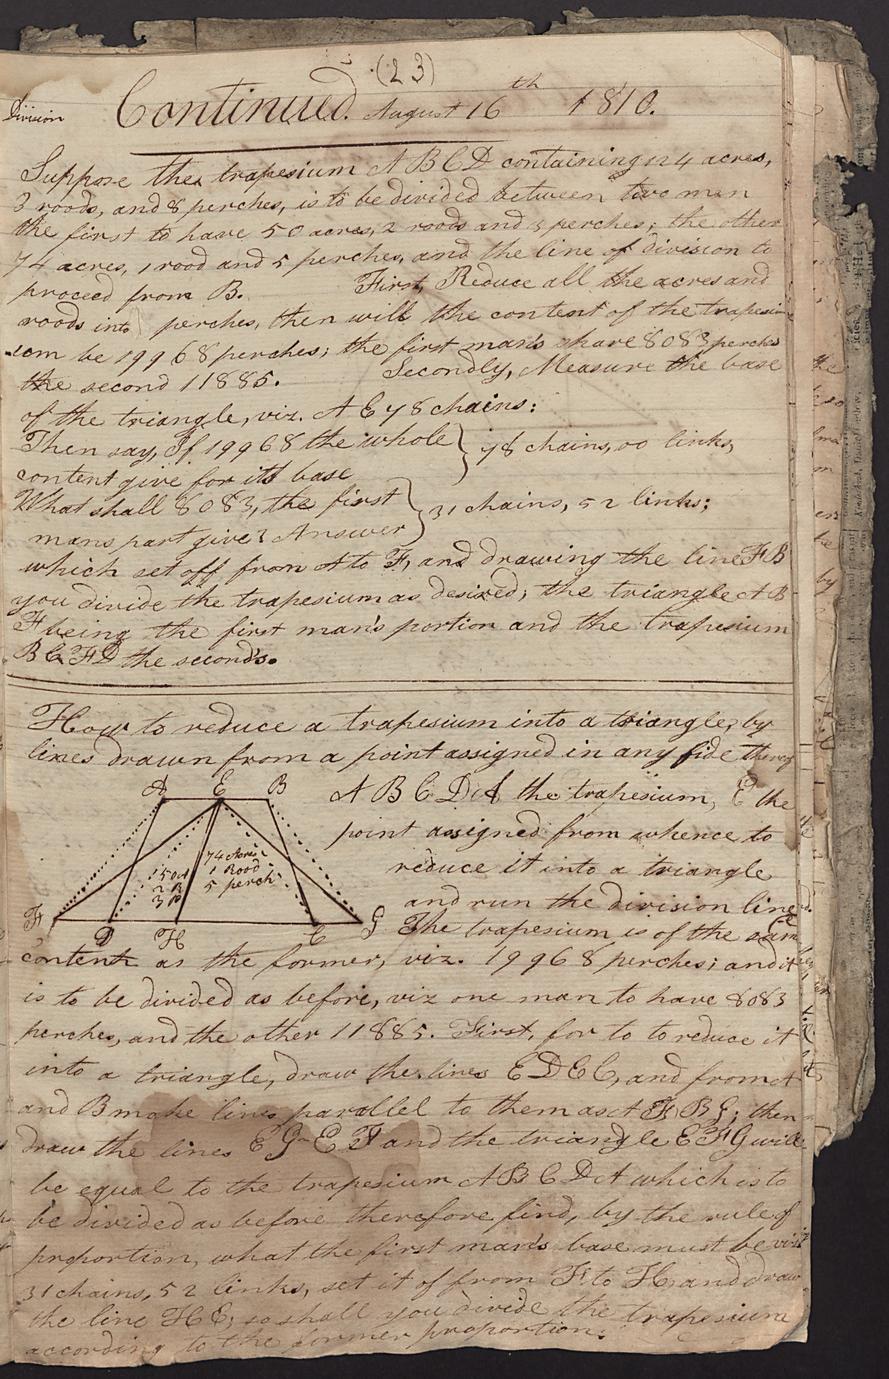 (23)
Division
Continued. August 16th 1810.
Suppose the trapesium A B C D containing 124 acres,
3 roods, and 8 perches, is to be divided between two men
the first to have 50 acres, 2 roods and 3 perches; the other
74 acres, 1 rood and 5 perches, and the line of division to
proceed from B. First, Reduce all the acres and
roods into perches, then will the content of the trapesi
um be 19968 perches; the first man's share 8083 perches
the second 11885. Secondly, Measure the base
of the triangle, viz. A E 78 chains:
Then say, If 19968 the whole } 78 chains, 00 links,
content give for its base
What shall 8083, the first } 31 chains, 52 links;
mans part give? Answer
which set off from A to F, and drawing the line F B
you divide the trapesium as desired; the triangle A B
F being the first man's portion and the trapesium
B C F D the second's.
How to reduce a trapesium into a triangle, by
lines drawn from a point assigned in any side thereof
A E B
A B C D A the trapesium, E the
point assigned from whence to
reduce it into a triangle
and run the division line.
150a
2 R
3 P
74 Acres
1 Rood
5 perch
F D H C G
The trapesium is of the same
content as the former, viz. 19968 perches; and it
is to be divided as before, viz one man to have 8083
perches, and the other 11885. First, for to to reduce it
into a triangle, draw the lines E D E C, and from A
and B make lines parallel to them as A F, B G; then
draw the lines E G E F and the triangle E F G will
be equal to the trapesium A B C D A which is to
be divided as before therefore find, by the rule of
proportion, what the first man's base must be viz
31 chains, 52 links, set it of from F to H and draw
the line H E; so shall you divide the trapesium
according to the former proportion.